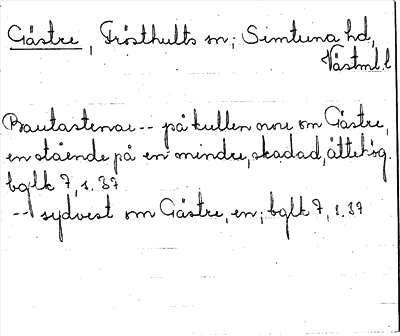 Gästre, Frösthults sn; Simtuna hd,
Västml l
Bautastenar -- på kullen nov om Gästre,
en stående på en mindre, skadad, ättehög.
bglk 7, s. 37
-- sydvest om Gästre, en; bglk 7, s. 37